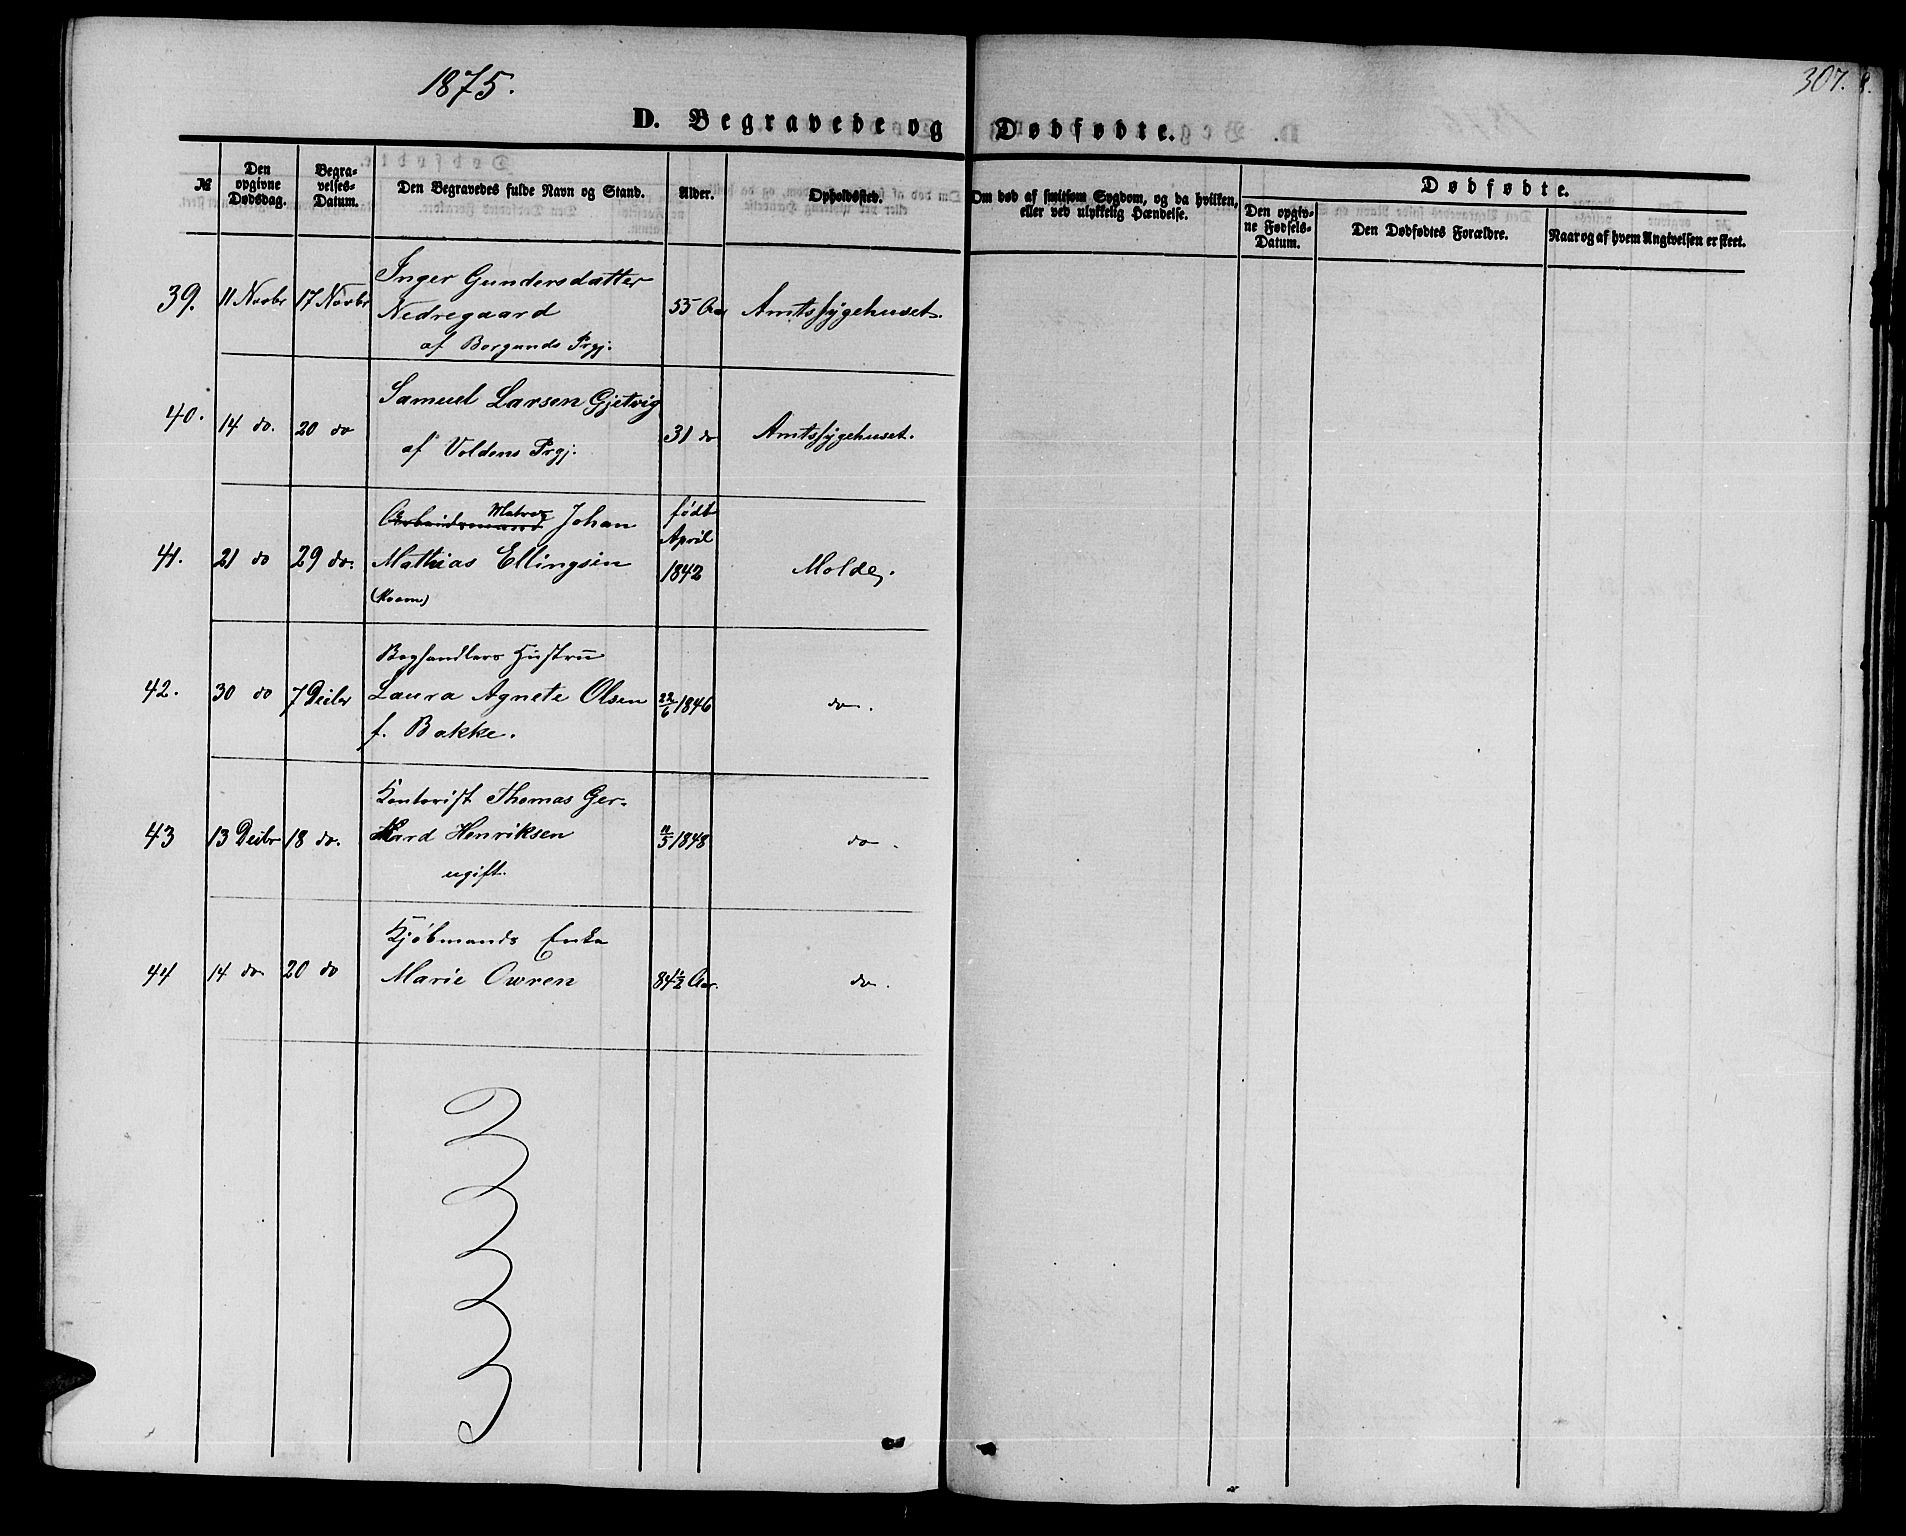 1875.
307.
D. Begravede og Dødfødte.
№
Den opgivne Dødsdag.
Begra-velses-Datum.
Den Begravedes fulde Navn og Stand.
Alder.
Opholdssted.
Om død af smitsom Sygdom, og da hvilken, eller ved ulykkelig Hændelse.
Dødfødte.
Den opgiv-ne Fødsels-Datum.
Den Dødfødtes Forældre.
Naar og af hvem Angivelsen er skeet.
39. 11 Novbr 17 Novbr Inger Gundersdatter 55 Aar Amtssygehuset.
Nedregaard
af Borgunds Prgj.
40. 14 do. 20 do Samuel Larsen Gjetvig 31 do Amtssygehuset.
af Voldens Prgj.
41. 21 do 29 do. Arbeidsmand Matros Johan født April 1842 Molde.
Mathias Ellingsen
42. 30 do 7 Decbr Boghandlers Hustru 22/6 1846 do.
Laura Agnete Olsen
f. Bakke.
43 13 Decbr 18 do. Kontorist Thomas Ger-
hard Henriksen 11/5 1848 do.
ugift.
44 14 do. 20 do Kjøbmands Enke
Marie Owren 84½ Aar. do.